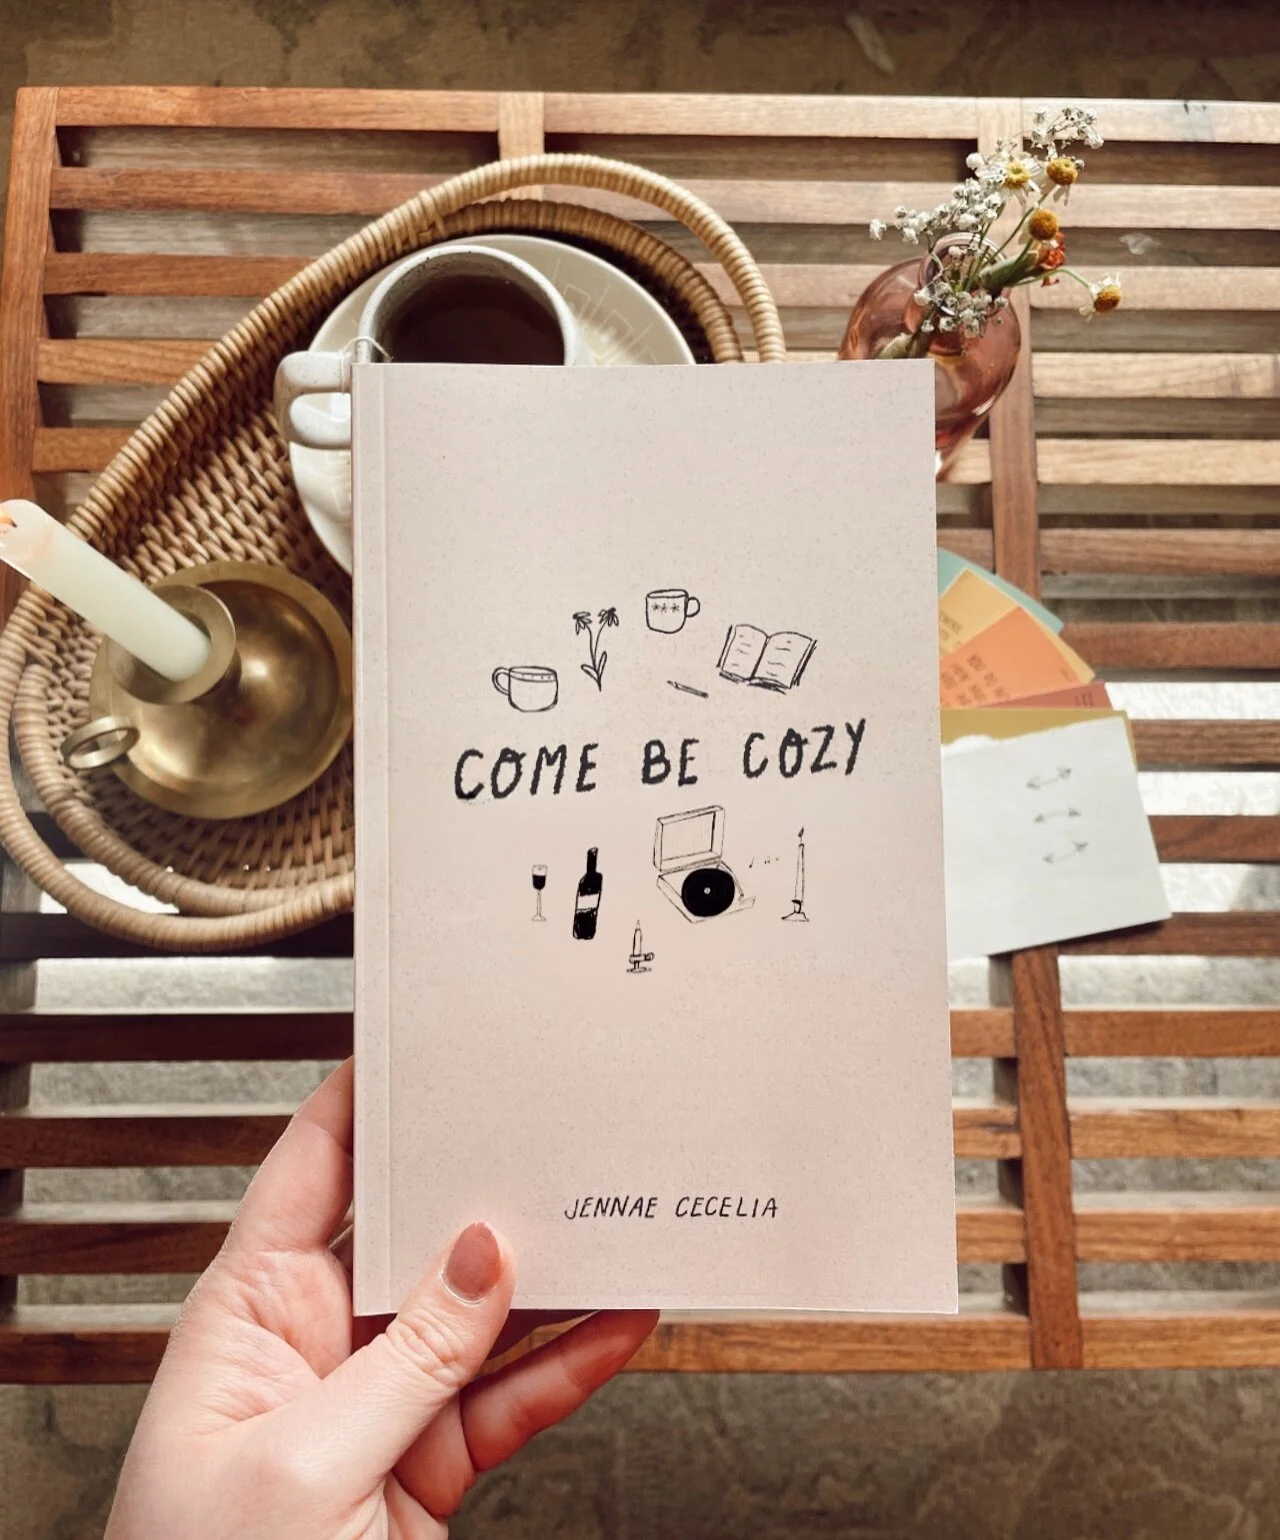 COME BE COZY
JENNAE CECELIA